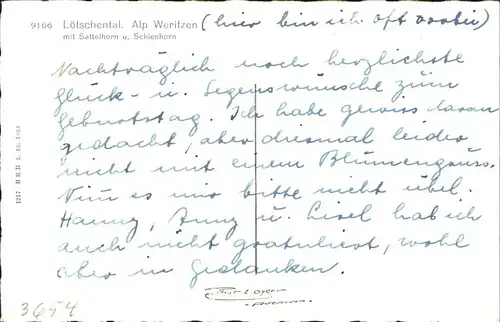 9166 Lötschental. Alp Weritzen (hier bin ich oft vorbei)
mit Sattelhorn u. Schienhorn
Nachträglich noch herzlichste
Glück- u. Segenswünsche zum
Geburtstag. Ich habe gewiss daran
gedacht, aber diesmal leider
nicht mit einem Blumengruss.
Nim es mir bitte nicht übel.
Hanny, Anny u. Lisel hab ich
auch nicht gratuliert, wohl
aber in Gedanken.
3654